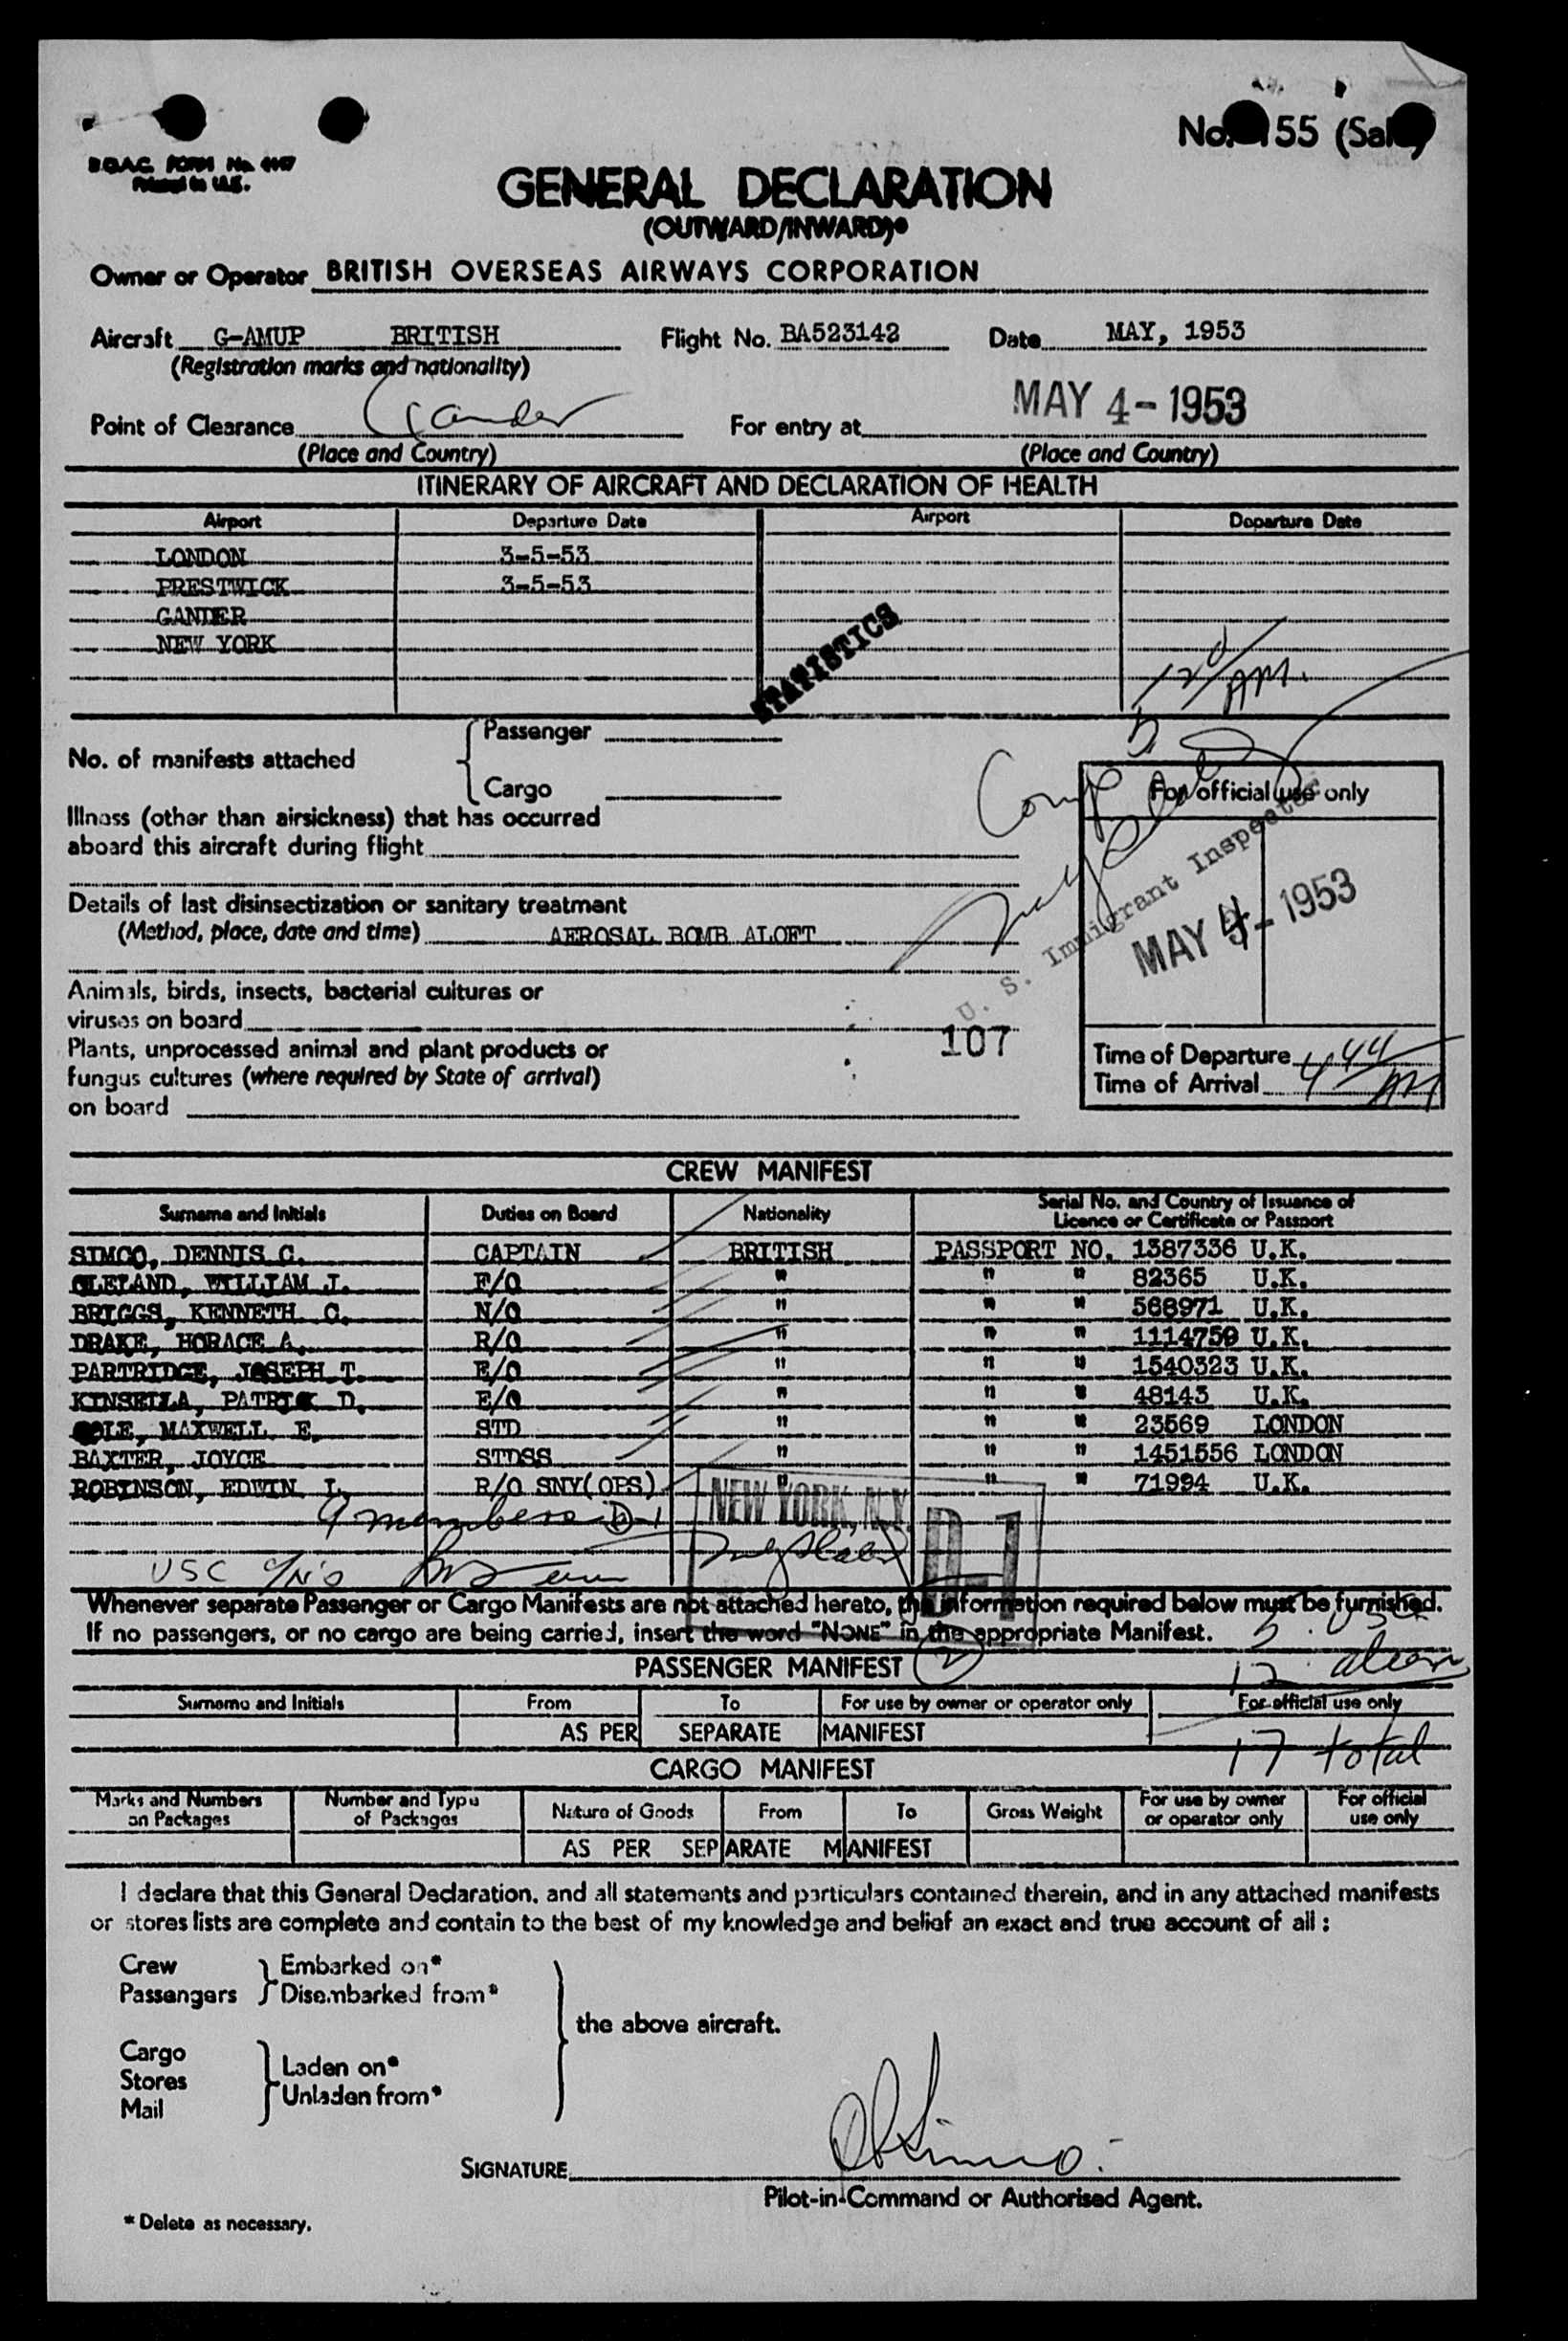 B.O.A.C. FORM No. 4167
Printed in U.K.
No. 155 (Sale)
GENERAL DECLARATION
(OUTWARD/INWARD)*
Owner or Operator BRITISH OVERSEAS AIRWAYS CORPORATION
Aircraft G-AMUP BRITISH Flight No. BA523142 Date MAY, 1953
(Registration marks and nationality)
MAY 4-1953
Point of Clearance Gander For entry at
(Place and Country) (Place and Country)
ITINERARY OF AIRCRAFT AND DECLARATION OF HEALTH
Airport Departure Date Airport Departure Date
LONDON 3-5-53
PRESTWICK 3-5-53
GANDER
NEW YORK
STATISTICS
AM.
No. of manifests attached { Passenger
Cargo
For official use only
Illness (other than airsickness) that has occurred
aboard this aircraft during flight
U. S. Immigrant Inspector
MAY 4-1953
Details of last disinsectization or sanitary treatment
(Method, place, date and time) AEROSAL BOMB ALOFT
Animals, birds, insects, bacterial cultures or
viruses on board
107
Plants, unprocessed animal and plant products or
fungus cultures (where required by State of arrival)
on board
Time of Departure 4 44
Time of Arrival AM
CREW MANIFEST
Surname and Initials Duties on Board Nationality Serial No. and Country of Issuance of
Licence or Certificate or Passport
SIMCO, DENNIS C. CAPTAIN BRITISH PASSPORT NO. 1387336 U.K.
CLELAND, WILLIAM J. F/O " " " 82365 U.K.
BRIGGS, KENNETH C. N/O " " " 568971 U.K.
DRAKE, HORACE A. R/O " " " 1114750 U.K.
PARTRIDGE, JOSEPH T. E/O " " " 1540323 U.K.
KINSELLA, PATRICK D. E/O " " " 48143 U.K.
COLE, MAXWELL E. STD " " " 23569 LONDON
BAXTER, JOYCE STDSS " " " 1451556 LONDON
ROBINSON, EDWIN L. R/O SNY(OPS) " " " 71994 U.K.
9 members D-1
NEW YORK, N.Y.
D-1
USC
Whenever separate Passenger or Cargo Manifests are not attached hereto, the information required below must be furnished.
If no passengers, or no cargo are being carried, insert the word "NONE" in the appropriate Manifest.
5 USC
PASSENGER MANIFEST (2)
12 alien
Surname and Initials From To For use by owner or operator only For official use only
AS PER SEPARATE MANIFEST
17 total
CARGO MANIFEST
Marks and Numbers on Packages Number and Type of Packages Nature of Goods From To Gross Weight For use by owner or operator only For official use only
AS PER SEPARATE MANIFEST
I declare that this General Declaration, and all statements and particulars contained therein, and in any attached manifests
or stores lists are complete and contain to the best of my knowledge and belief an exact and true account of all :
Crew } Embarked on*
Passengers } Disembarked from*
the above aircraft.
Cargo
Stores } Laden on*
Mail } Unladen from*
SIGNATURE
Pilot-in-Command or Authorised Agent.
* Delete as necessary.